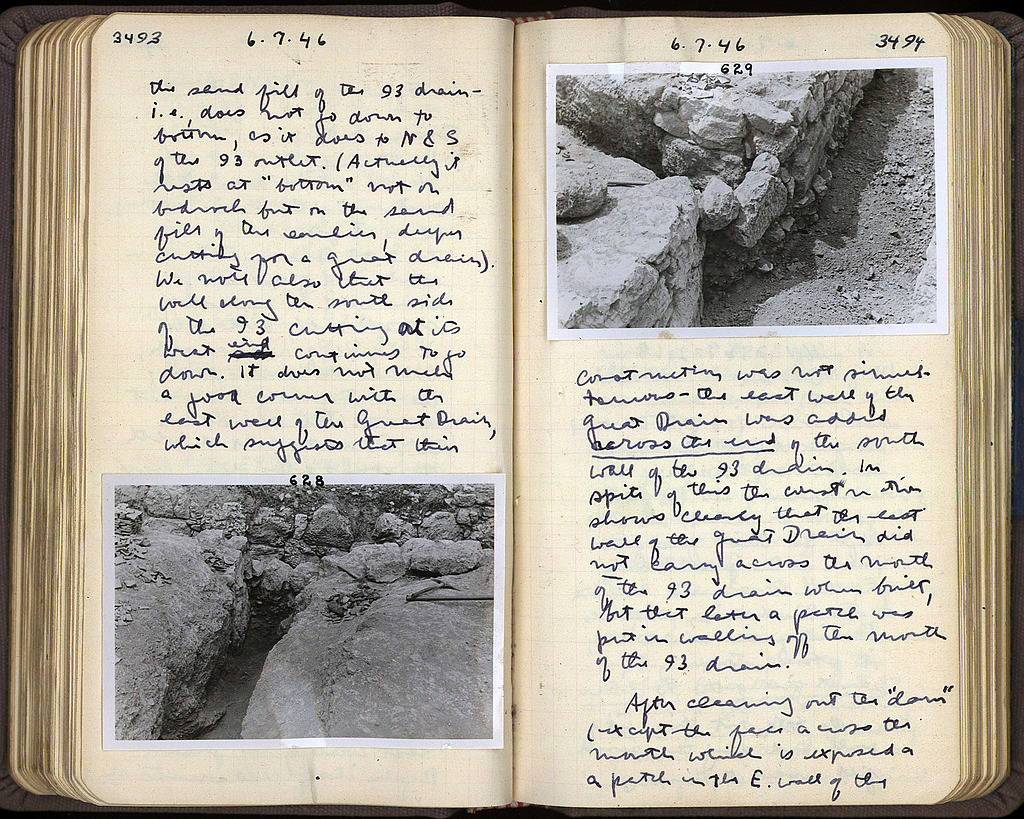 3493
6.7.46
the sand fill of the 93 drain -
i.e., does not go down to
bottom, as it does to N & S
of the 93 outlet. (Actually it
rests at "bottom" not on
bedrock but on the sand
fill of the earlier, deeper
cutting for a great drain).
We note also that the
wall along the south side
of the 93 cutting at its
west end continues to go
down. It does not make
a good corner with the
east wall of the Great Drain,
which suggests that their
628
6.7.46
3494
629
construction was not simul-
taneous - the east wall of the
Great Drain was added
across the end of the south
wall of the 93 drain. In
spite of this the construction
shows clearly that the east
wall of the Great Drain did
not carry across the mouth
of the 93 drain when built,
but that later a patch was
put in walling off the mouth
of the 93 drain.
After cleaning out the "dam"
(except the face across the
mouth which is exposed a
a patch in the E. wall of the